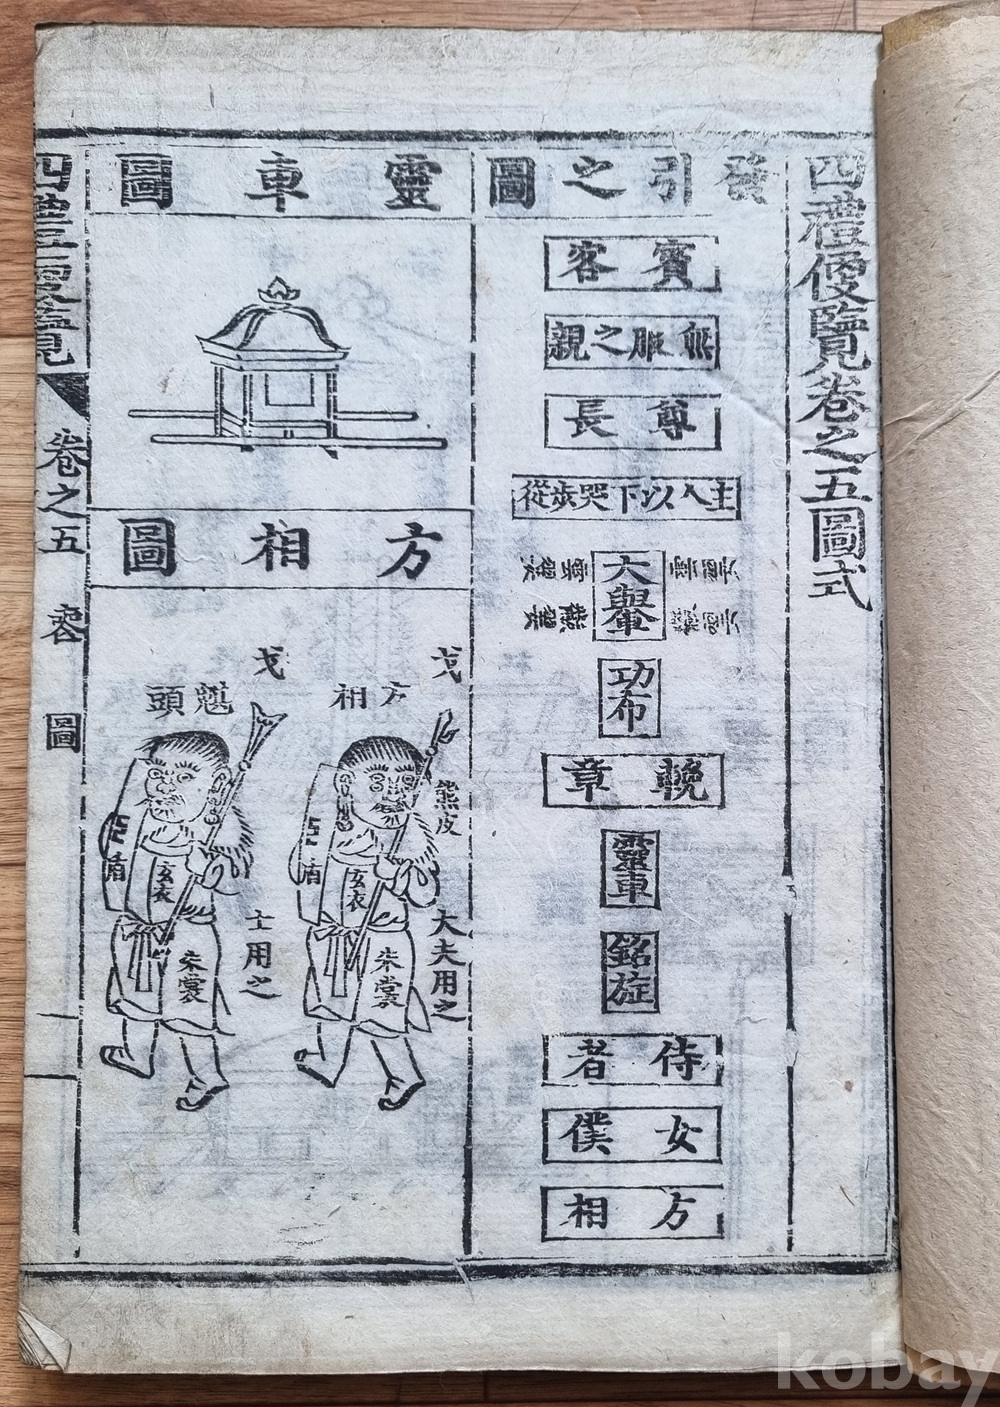 四禮便覽卷之五圖式
發引之圖
賓客
無服之親
尊長
主人以下哭步從
大轝
雲翣
黻翣
功布
輓章
靈車
銘旌
侍者
女僕
方相
靈車圖
方相圖
戈
方相
熊皮
盾
玄衣
朱裳
大夫用之
戈
魌頭
盾
玄衣
朱裳
士用之
四禮便覽
卷之五
喪
圖
kobay